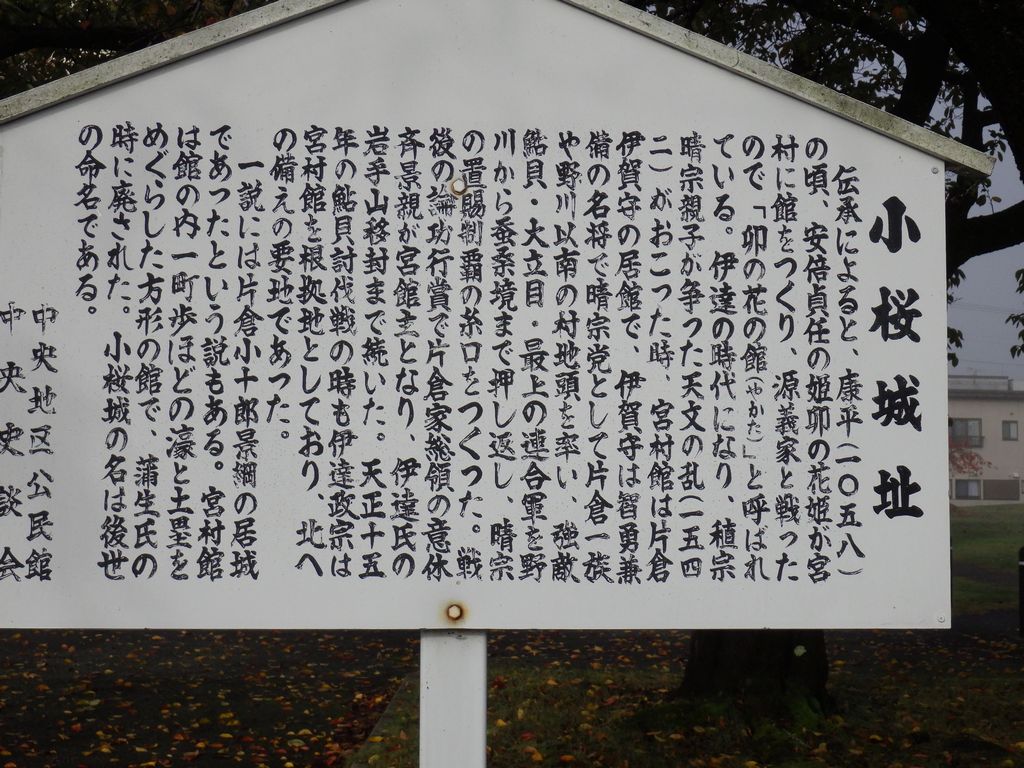 小桜城址
伝承によると、康平(一〇五八)
の頃、安倍貞任の姫卯の花姫が宮
村に館をつくり、源義家と戦った
ので「卯の花の館(やかた)」と呼ばれ
ている。伊達の時代になり、稙宗
晴宗親子が争った天文の乱(一五四
二)がおこった時、宮村館は片倉
伊賀守の居館で、伊賀守は智勇兼
備の名将で晴宗党として片倉一族
や野川以南の村地頭を率い、強敵
鮎貝・大立目・最上の連合軍を野
川から蚕桑境まで押し返し、晴宗
の置賜制覇の糸口をつくった。戦
後の論功行賞で片倉家総領の意休
斉景親が宮館主となり、伊達氏の
岩手山移封まで続いた。天正十五
年の鮎貝討伐戦の時も伊達政宗は
宮村館を根拠地としており、北へ
の備えの要地であった。
一説には片倉小十郎景綱の居城
であったという説もある。宮村館
は館の内一町歩ほどの濠と土塁を
めぐらした方形の館で、蒲生氏の
時に廃された。小桜城の名は後世
の命名である。
中央地区公民館
中央史談会